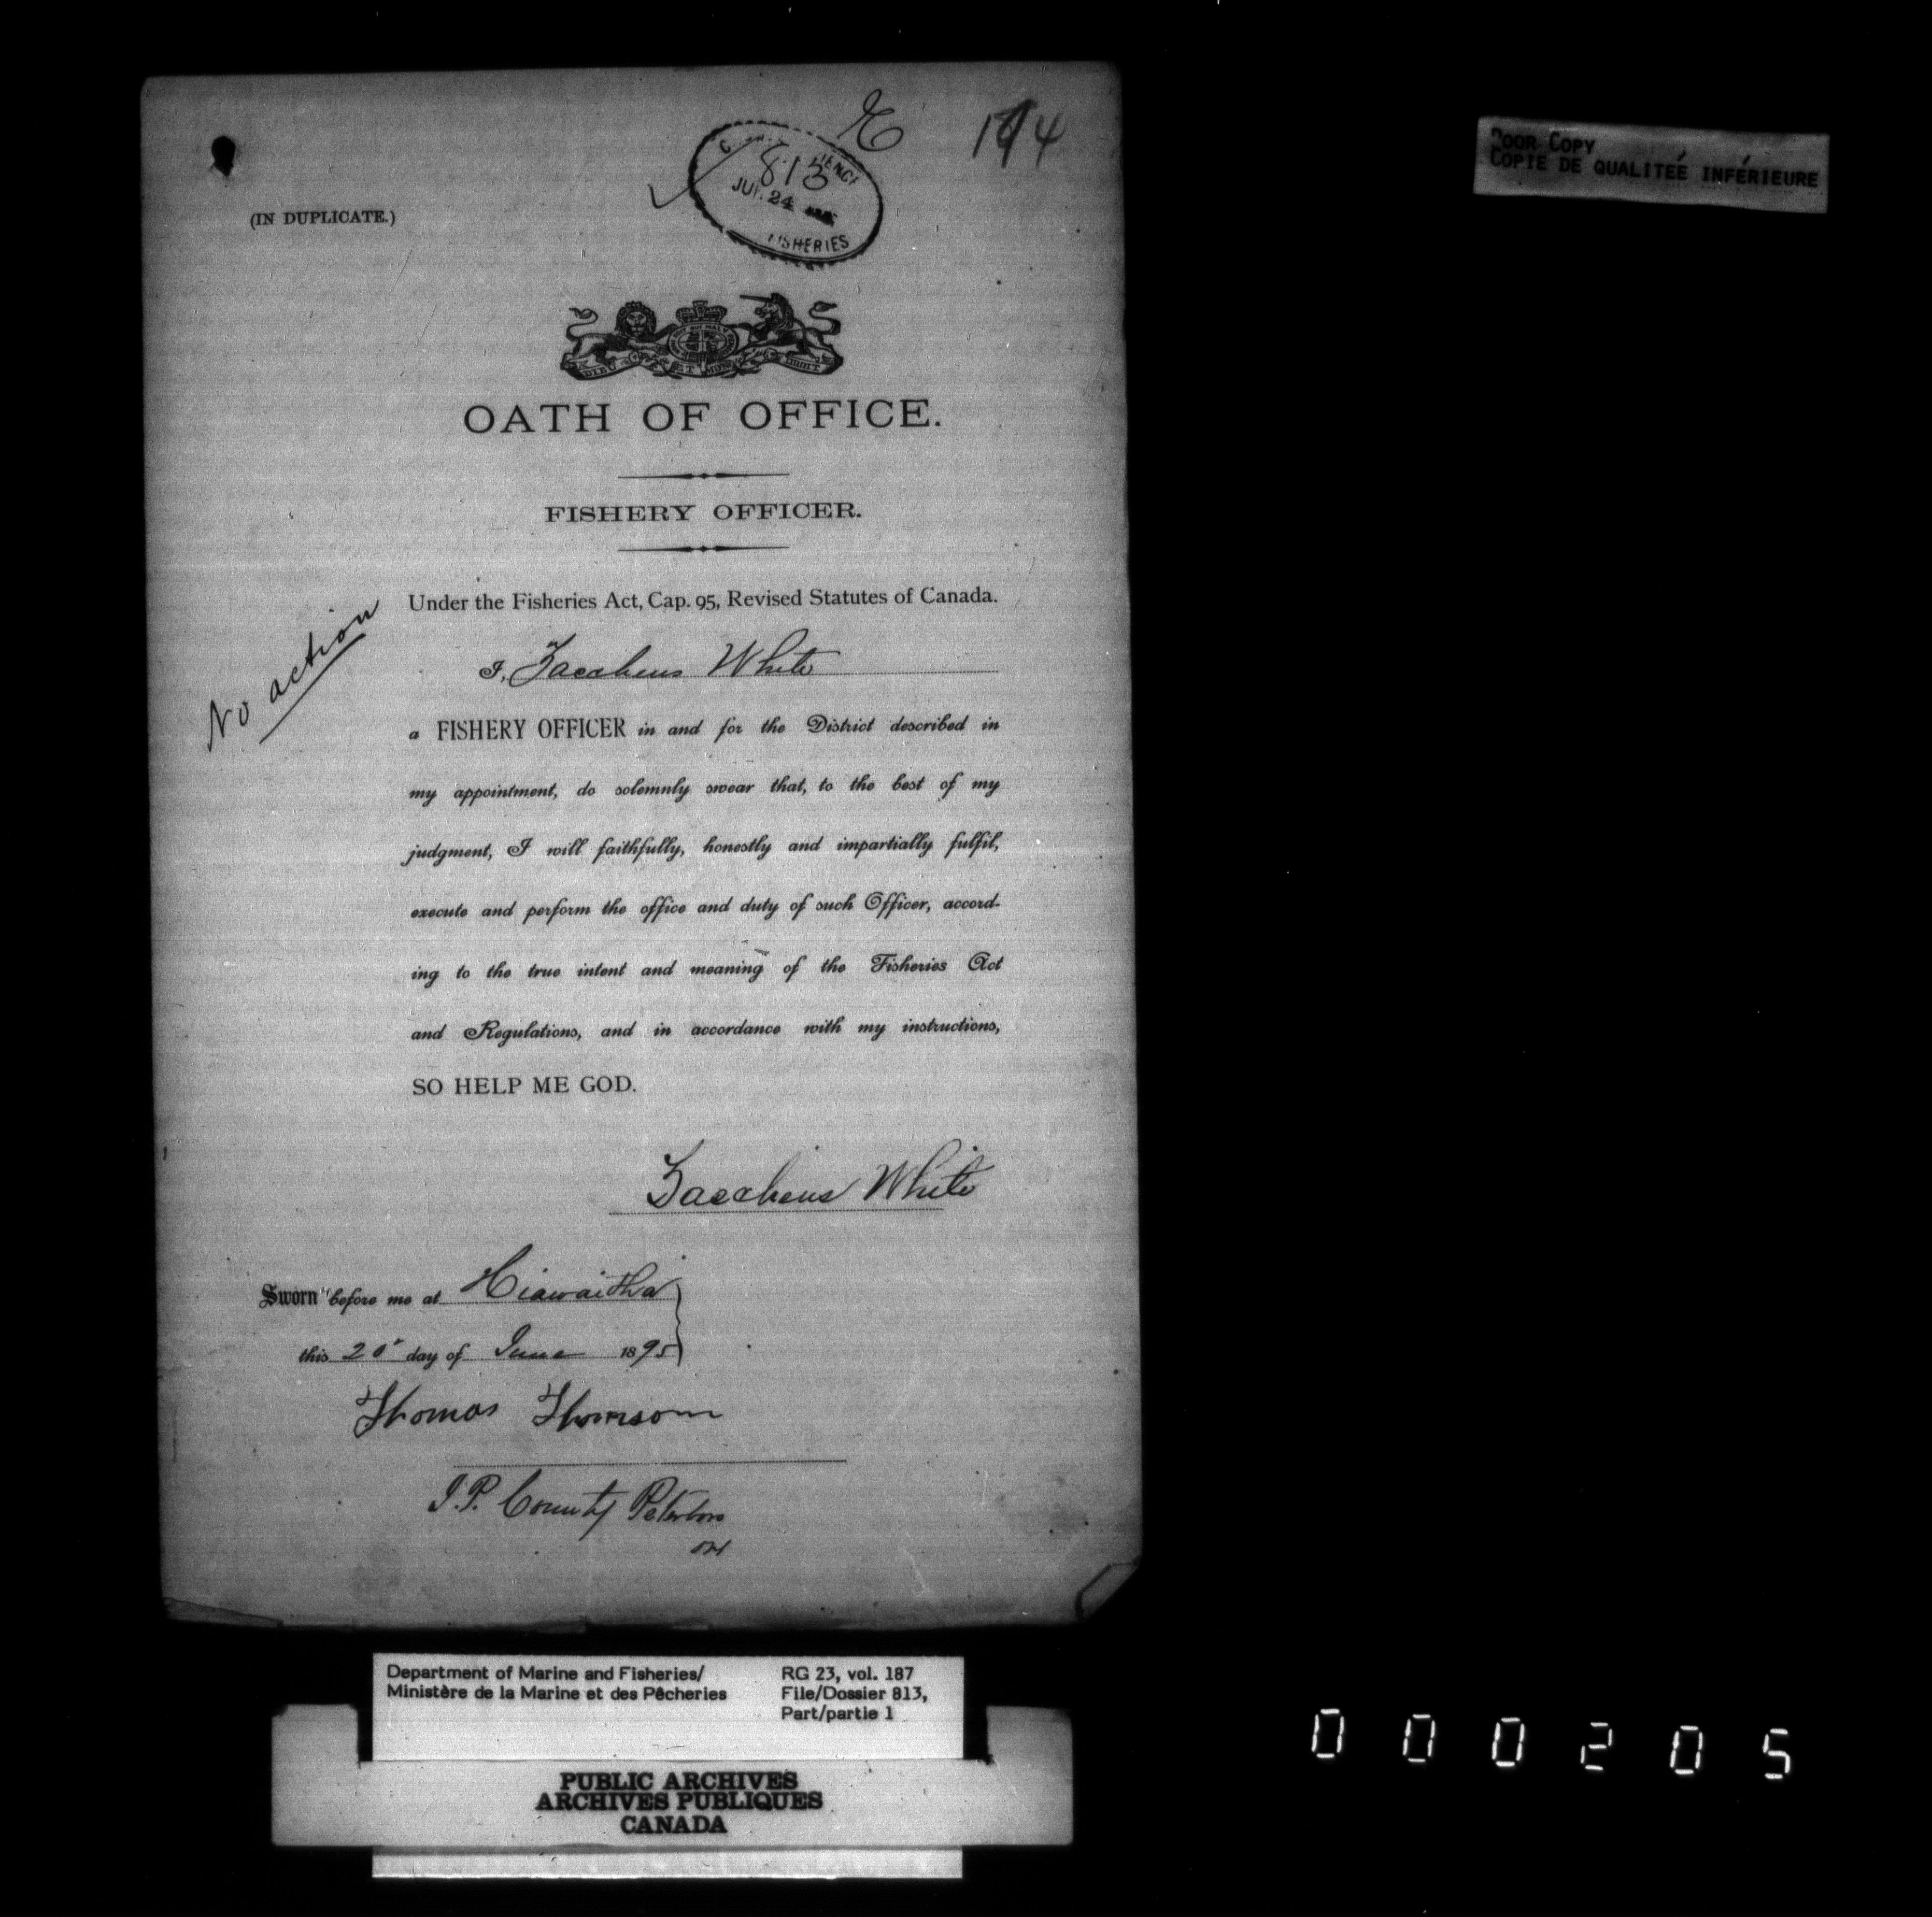 194
813
JUN 24
FISHERIES
(IN DUPLICATE.)
OATH OF OFFICE.
FISHERY OFFICER.
Under the Fisheries Act, Cap. 95, Revised Statutes of Canada.
No action
I, Zaccheus White
a FISHERY OFFICER in and for the District described in
my appointment, do solemnly swear that, to the best of my
judgment, I will faithfully, honestly and impartially fulfil,
execute and perform the office and duty of such Officer, accord-
ing to the true intent and meaning of the Fisheries Act
and Regulations, and in accordance with my instructions,
SO HELP ME GOD.
Zaccheus White
Sworn before me at Hiawaitha
this 20 day of June 1895
Thomas Thomson
J.P. County Peterboro
Ont
POOR COPY
COPIE DE QUALITÉE INFÉRIEURE
Department of Marine and Fisheries/
Ministère de la Marine et des Pêcheries
RG 23, vol. 187
File/Dossier 813,
Part/partie 1
PUBLIC ARCHIVES
ARCHIVES PUBLIQUES
CANADA
000205